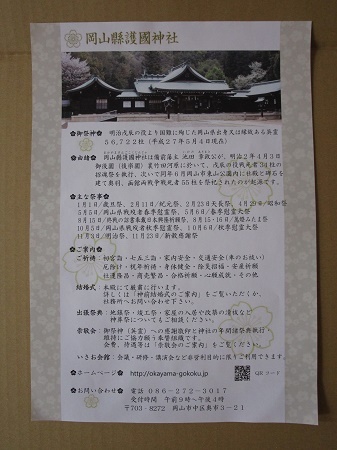 岡山縣護國神社
◆御祭神◆ 明治戊辰の役より国難に殉じた岡山県出身又は縁故ある英霊
56,722柱(平成27年5月4日現在)
◆由緒◆ 岡山縣護國神社は備前藩主 池田 章政公が、明治2年4月3日
御後園(後楽園)菓竹田河原に於いて、戊辰の役戦死者34柱の
招魂祭を執行、次いで同年6月岡山市東山公園内に社殿と碑石を
建て奥羽、函館両戦争戦死者55柱を祭祀されたのが起源です。
◆主な祭事◆
1月1日/歳旦祭、2月11日/紀元祭、2月23日天長祭、4月29日/昭和祭
5月5日/岡山県戦没者春季慰霊大祭、5月6日/春季慰霊大祭
8月15日/終戦の詔書奉戴日本興隆祈願祭、8月15・16日/萬燈みたま祭
10月5日/岡山県戦没者秋季慰霊大祭、10月6日/秋季慰霊大祭
11月3日/明治祭、11月23日/新穀感謝祭
◆ご案内◆
ご祈祷:初宮詣・七五三詣・家内安全・交通安全(車のお祓い)
厄除け・祝年祈祷・身体健全・除災招福・安産祈願
社運隆昌・商売繁昌・合格祈願・心願成就・その他
結婚式:本殿にて厳粛に行います。
詳しくは「神前結婚式のご案内」をご覧いただくか、
社務所へお問い合わせ下さい。
出張祭典:地鎮祭・竣工祭・家屋の入居や改築の清祓など
神葬祭についてもご相談ください。
崇敬会:御祭神(英霊)への感謝敬仰と神社の年間諸祭典執行
維持にご協力願う奉賛組織です。
会費、待遇等は「崇敬会のご案内」をご覧ください。
いさお会館:会議・研修・講演会など非営利目的に限りご利用できます。
◆ホームページ◆ http://okayama-gokoku.jp QRコード
◆お問い合わせ◆ 電話 086-272-3017
受付時間 午前9時~午後4時
〒703-8272 岡山市中区奥市3-21